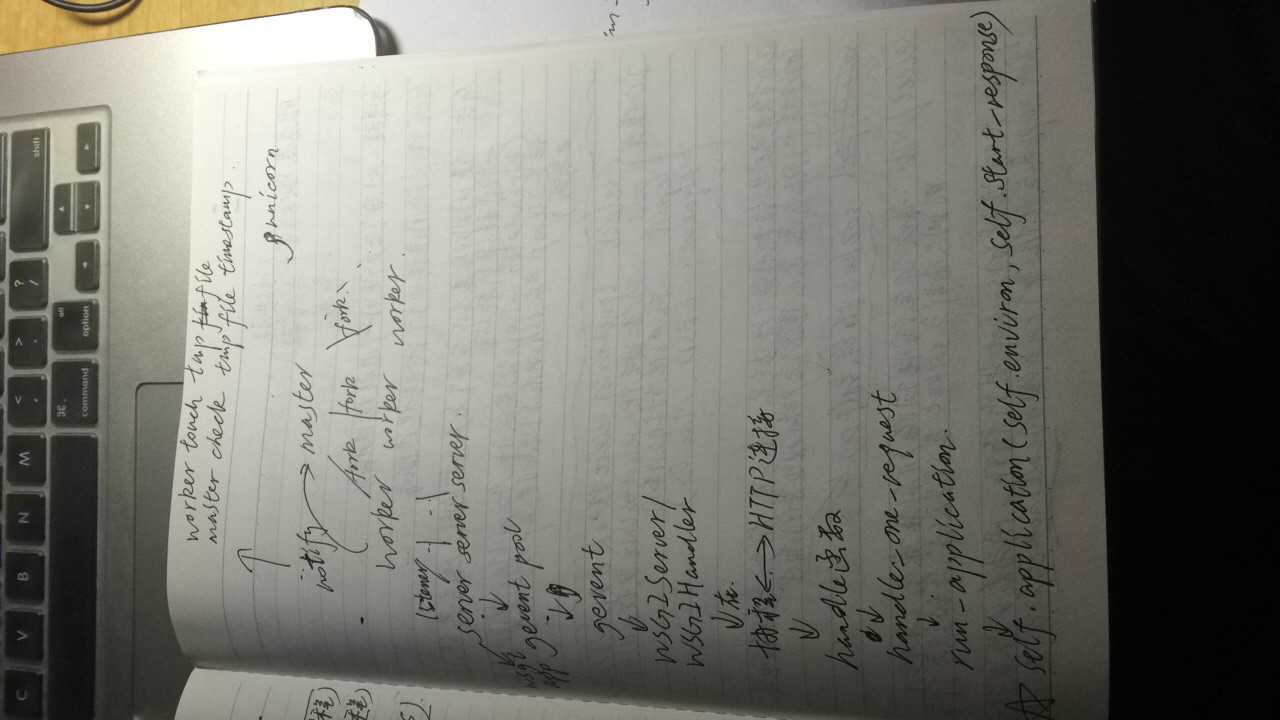 worker touch tmp file
master check tmp file timestamp.
gunicorn
notify → master
fork fork fork
worker worker worker
listener
server server server.
gevent pool
wsgi
app
gevent
WSGIServer/
WSGIHandler
协程 ←→ HTTP连接
handle函数
handle_one_request
run_application.
☆ self.application(self.environ, self.start_response)
shift
?
>
<
M
N
B
V
C
alt
option
⌘
command